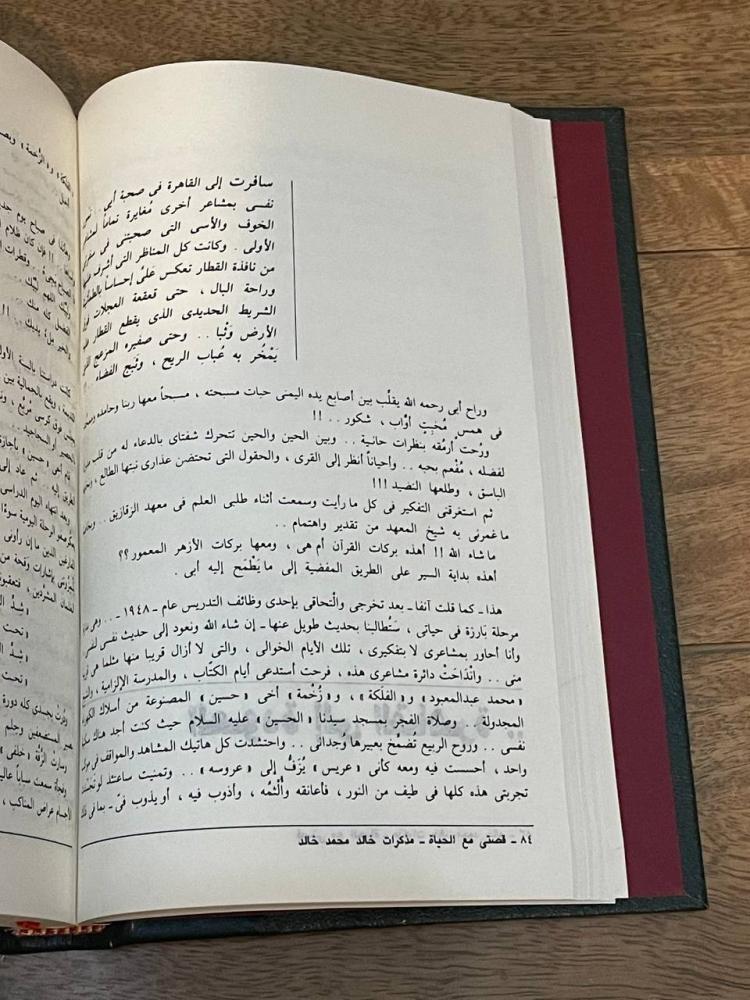 سافرت إلى القاهرة فى صحبة أبى
نفسى بمشاعر أخرى مُغايرة تماماً
الخوف والأسى التى صحبتنى فى
الأولى . وكانت كل المناظر التى أشرف
من نافذة القطار تعكس علىّ إحساساً
وراحة البال ، حتى قعقعة العجلات
الشريط الحديدى الذى يقطع القطار
الأرض وَثْبا . . وحتى صفيره المزعج
يَمْخُر به عُباب الريح ، وثبج الفضاء
وراح أبى رحمه الله يقلّب بين أصابع يده اليمنى حبات مسبحته ، مسبحاً معها ربنا وحامده
فى همس مُخبِتٍ أوّاب ، شكور . . !!
ورُحت أرمُقه بنظرات حانية . . وبين الحين والحين تتحرك شفتاى بالدعاء له من قلب
لفضله ، مُفْعم بحبه . . وأحياناً أنظر إلى القرى ، والحقول التى تحتضن عذارى نبتها الطالع ،
الباسق ، وطلعها النضيد !!!
ثم استغرقنى التفكير فى كل ما رأيت وسمعت أثناء طلبى العلم فى معهد الزقازيق . .
ما غمرنى به شيخ المعهد من تقدير واهتمام . .
ما شاء الله !! أهذه بركات القرآن أم هى ، ومعها بركات الأزهر المعمور ؟؟
أهذه بداية السير على الطريق المفضية إلى ما يَطْمَح إليه أبى .
هذا ـ كما قلت آنفا ـ بعد تخرجى والْتحاقى بإحدى وظائف التدريس عام ـ ١٩٤٨ ـ . . وهى
مرحلة بَارزة فى حياتى ، سَتُطالبنا بحديث طويل عنها ـ إن شاء الله ونعود إلى حديث نفسى
وأنا أحاور بمشاعرى لا بتفكيرى ، تلك الأيام الخوالى ، والتى لا أزال قريبا منها مثلما هى
منى . . وانْدَاحَتْ دائرة مشاعرى هذه ، فرحت أستدعى أيام الكتّاب ، والمدرسة الإلزامية ،
«محمد عبدالمعبود» و«الفَلَكة» ، و«زُخْمة» أخى «حسين» المصنوعة من أسلاك
المجدولة . . وصلاة الفجر بمسجد سيدنا «الحسين» عليه السلام حيث كنت أجد هناك
نفسى . . وروح الربيع تُضَمِّخ بعبيرها وِجدانى . . واحتشدت كل هاتيك المشاهد والمواقف فى
واحد ، أحسست فيه ومعه كأنى «عريس» يُزَفُّ إلى «عروسه» . . وتمنيت ساعتئذ لو
تجربتى هذه كلها فى طيف من النور ، فأعانقه وألْثمُه ، وأذوب فيه ، أو يذوب فىّ ـ بما فى
٨٤ ـ قصتى مع الحياة ـ مذكرات خالد محمد خالد